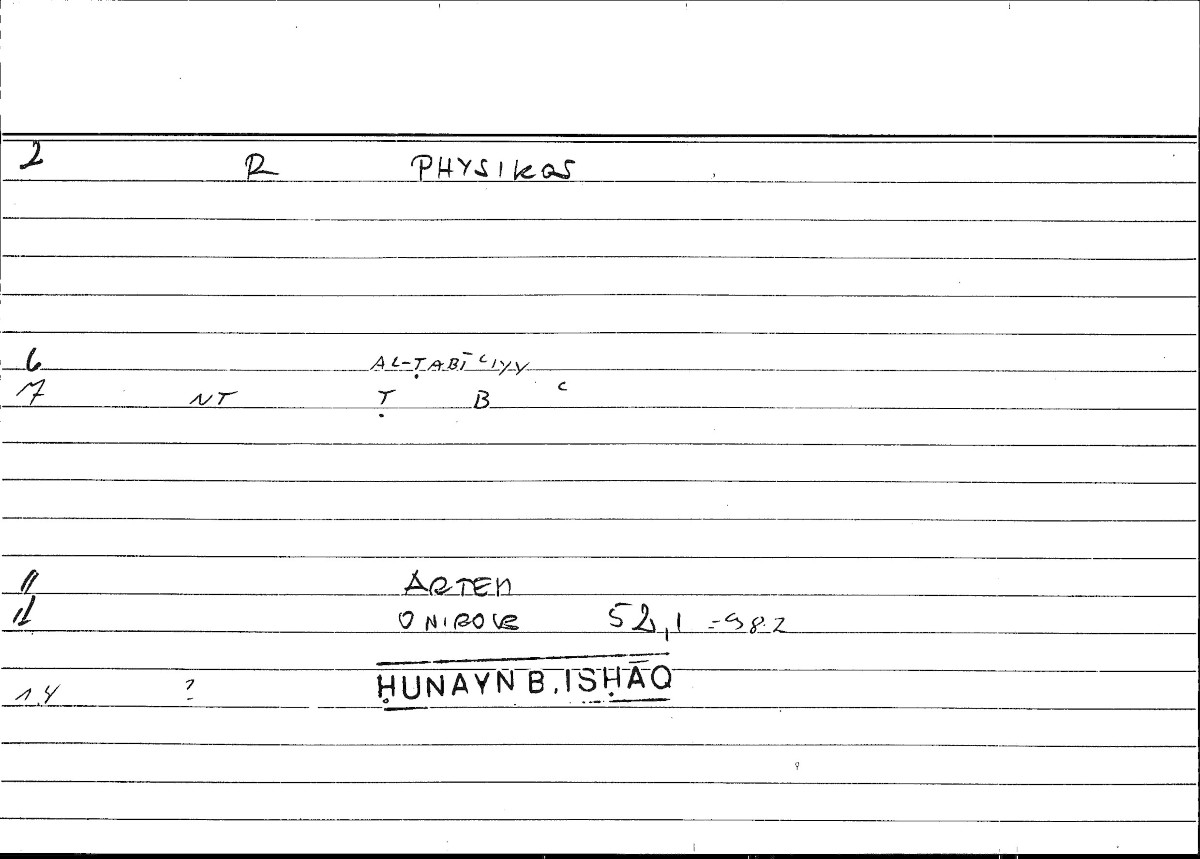 2 R PHYSIKOS
6 AL-ṬABĪʿIYY
7 NT Ṭ B ʿ
11 ARTEM
12 ONIROCR 52,1 = 98.2
14 ? ḤUNAYN B. ISḤĀQ